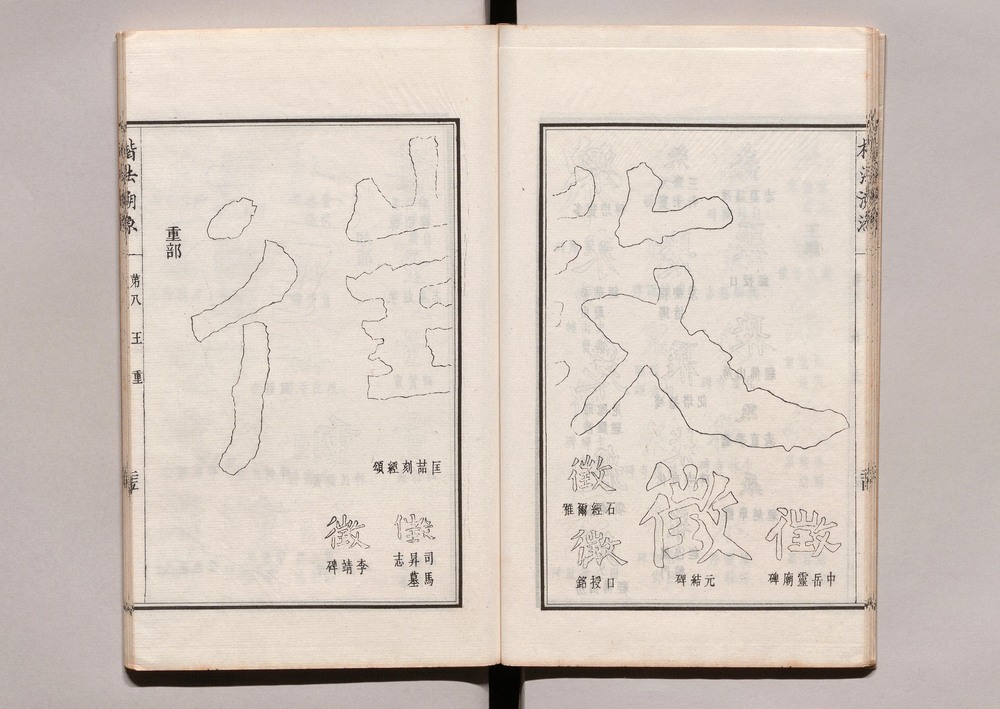 徵
徵
中岳靈廟碑
徵
元結碑
徵
石經爾雅
徵
口授銘
匡喆刻經頌
徵
司馬昇墓志
徵
李靖碑
重部
楷法溯源 第八 王 重